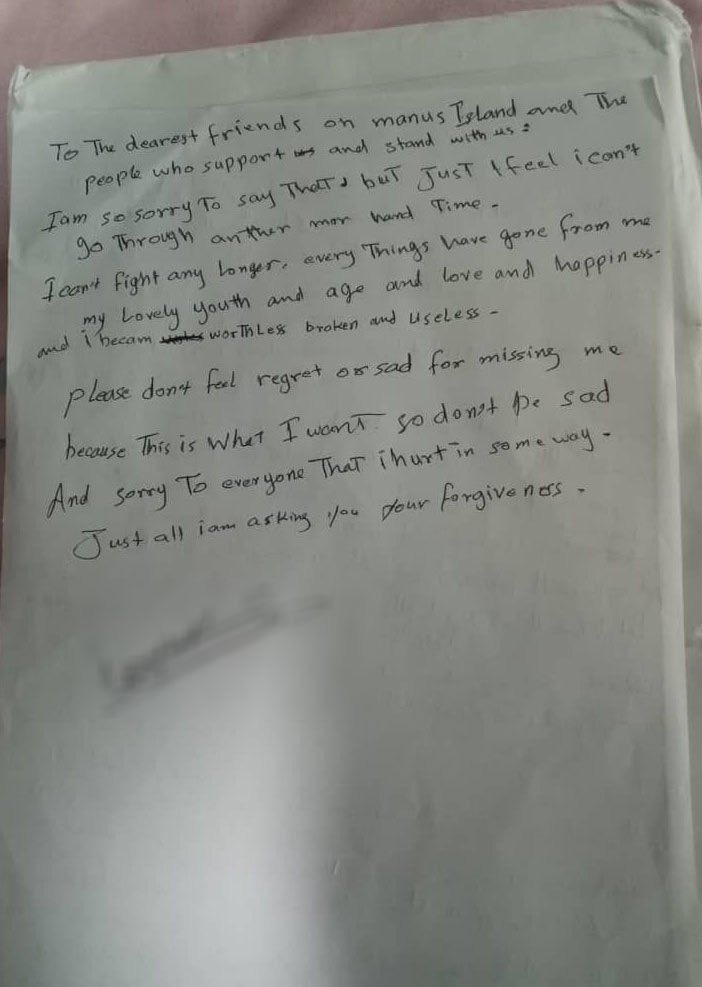 To The dearest friends on manus Island and The
people who support and stand with us :
I am so sorry To say That , but Just I feel i can't
go Through anther mor hand Time -
I can't fight any Longer. every Things have gone from me
my Lovely youth and age and love and happiness-
and i becam worthless broken and useless -
please don't feel regret or sad for missing me
because This is what I want so don't be sad
And sorry To everyone That i hurt in some way -
Just all i am asking you your forgiveness -